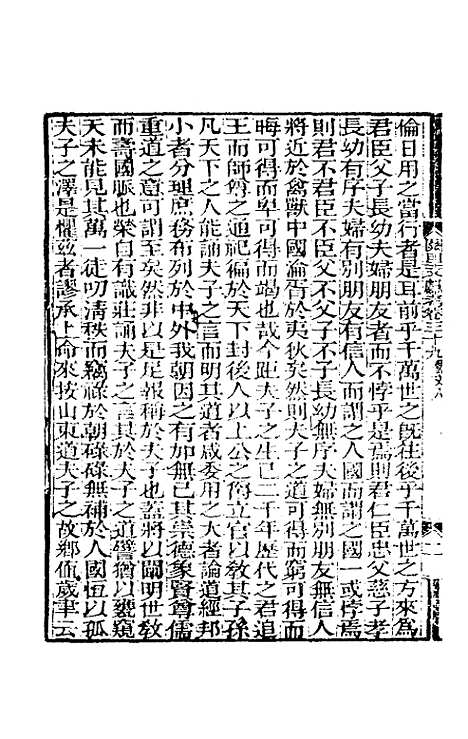 倫日用之當行者是耳前乎千萬世之旣往後乎千萬世之方來爲
君臣父子長幼夫婦朋友者而不悖乎是焉則君仁臣忠父慈子孝
長幼有序夫婦有別朋友有信人而謂之人國而謂之國一或悖焉
則君不君臣不臣父不父子不子長幼無序夫婦無別朋友無信人
將近於禽獸中國淪胥於夷狄矣然則夫子之道可得而窮可得而
晦可得而卑可得而竭也哉今距夫子之生已二千年歷代之君追
王而師尊之通祀徧於天下封後人以上公之爵立官以敎其子孫
凡天下之人能誦夫子之言而明其道者咸委用之大者論道經邦
小者分理庶務布列於中外我朝因之有加無已其崇德象賢尊儒
重道之意可謂至矣然非以是足報稱於夫子也蓋將以闡明世敎
而壽國脈也榮自有識莊誦夫子之言其於夫子之道譬猶以甕窺
天未能見其萬一徒叨淸秩而竊祿於朝碌碌無補於人國恆以孤
夫子之澤是懼茲者謬承上命來按山東道夫子之故鄉値歲聿云
卷三十九